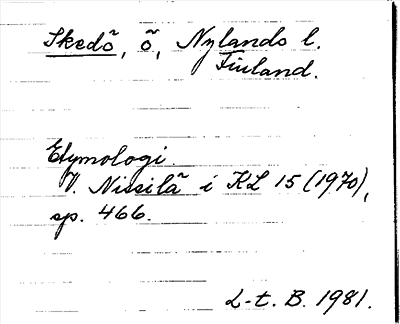 Skedö, ö, Nylands l.
Finland.
Etymologi.
V. Nissilä i KL 15 (1970),
sp. 466.
L-t. B. 1981.